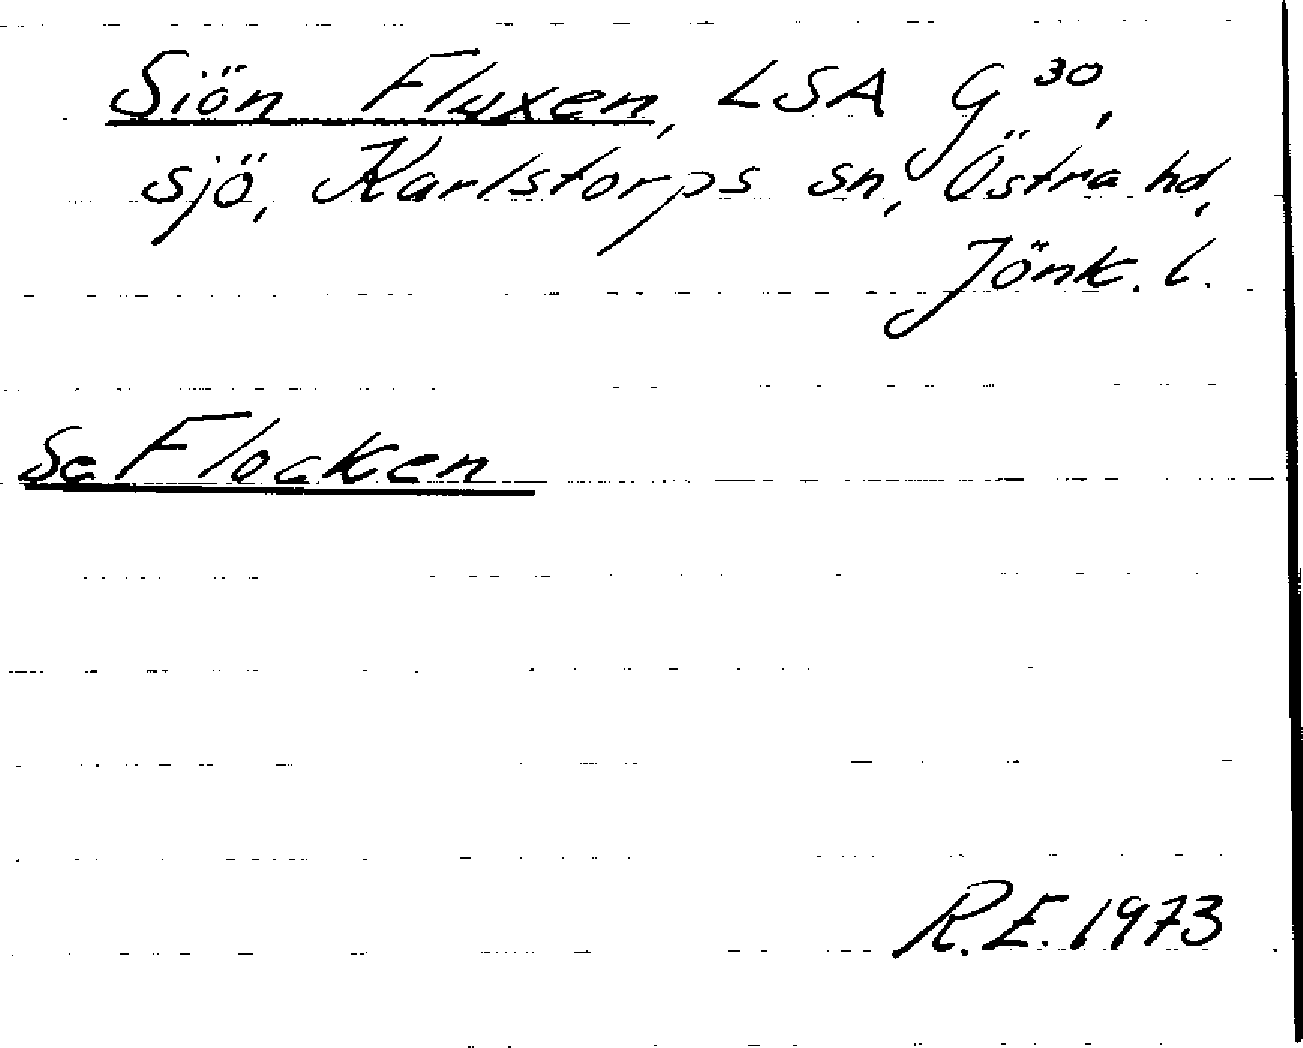 Siön Fluxen, LSA G 30,
sjö, Karlstorps sn, Östra hd,
Jönk. l.
Se Flocken
R.E. 1973